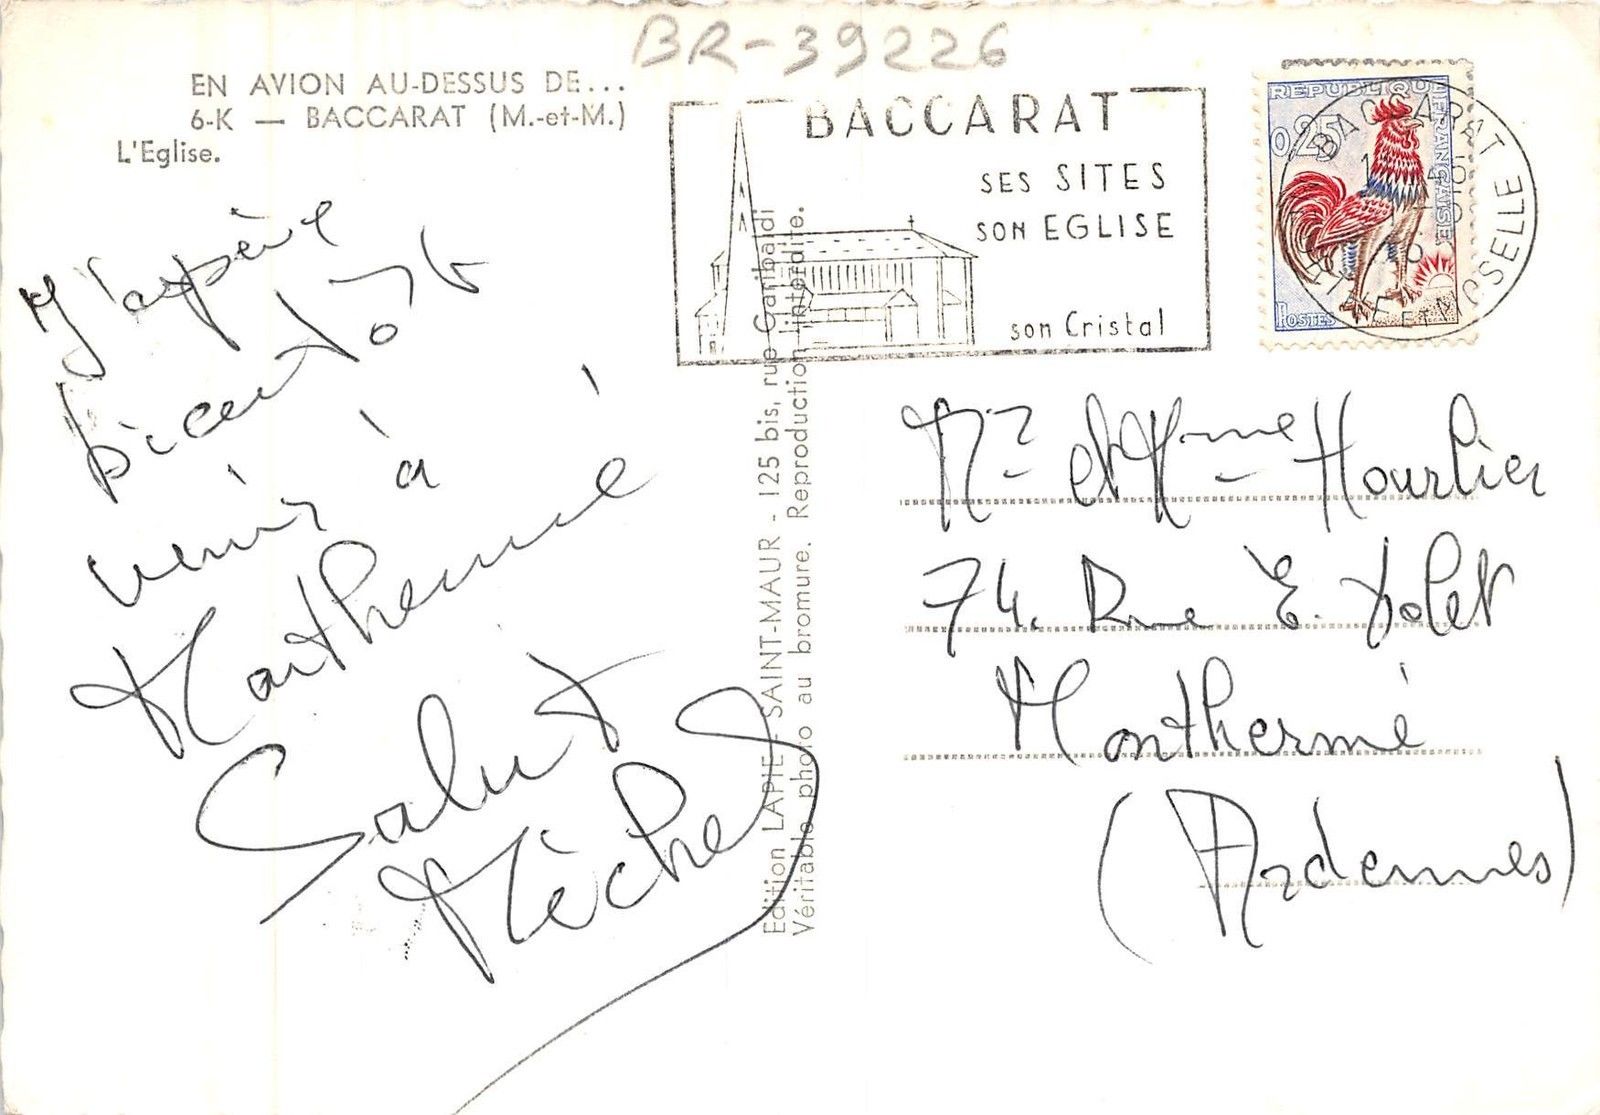 BR-39226
EN AVION AU-DESSUS DE...
6-K — BACCARAT (M.-et-M.)
L'Eglise.
J'aspère
bientôt
venir à
Monthermé
Salut
Michel
Edition LAPIE - SAINT-MAUR - 125 bis, rue Garibaldi
Véritable photo au bromure. Reproduction interdite.
BACCARAT
SES SITES
SON EGLISE
son Cristal
REPUBLIQUE FRANÇAISE
0,25
POSTES
BACCARAT
MEURTHE ET MOSELLE
Mr et Mme Hourlier
74, Rue E. Dolet
Monthermé
(Ardennes)